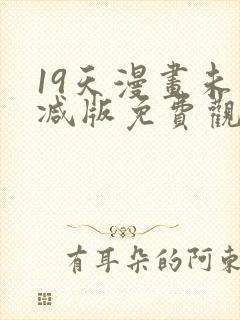 19天漫畫未
减版免費觀
有耳朵的阿東